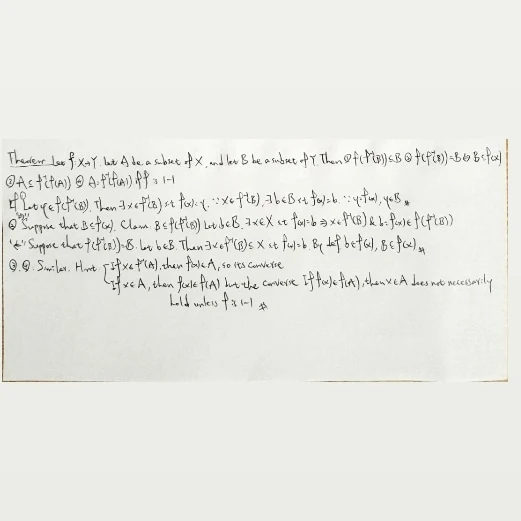 Theorem Let f: X→Y, let A be a subset of X, and let B be a subset of Y. Then ① f(f⁻¹(B))⊆B ② f(f⁻¹(B))=B⇔B⊆f(X)
③ A⊆f⁻¹(f(A)) ④ A=f⁻¹(f(A)) iff f is 1-1
pf Let y∈f(f⁻¹(B)). Then ∃x∈f⁻¹(B) st f(x)=y. ∵x∈f⁻¹(B), ∃b∈B st f(x)=b. ∴y=f(x), y∈B
② Suppose that B⊆f(X). Claim B⊆f(f⁻¹(B)) Let b∈B. ∃x∈X st f(x)=b⇒x∈f⁻¹(B) & b=f(x)∈f(f⁻¹(B))
"⇐" Suppose that f(f⁻¹(B))=B. Let b∈B. Then ∃x∈f⁻¹(B)⊆X st f(x)=b. By def b∈f(X), B⊆f(X)
③ ④. Similar. Hint If x∈f⁻¹(A), then f(x)∈A, so its converse
If x∈A, then f(x)∈f(A) but the converse If f(x)∈f(A), then x∈A does not necessarily
hold unless f is 1-1